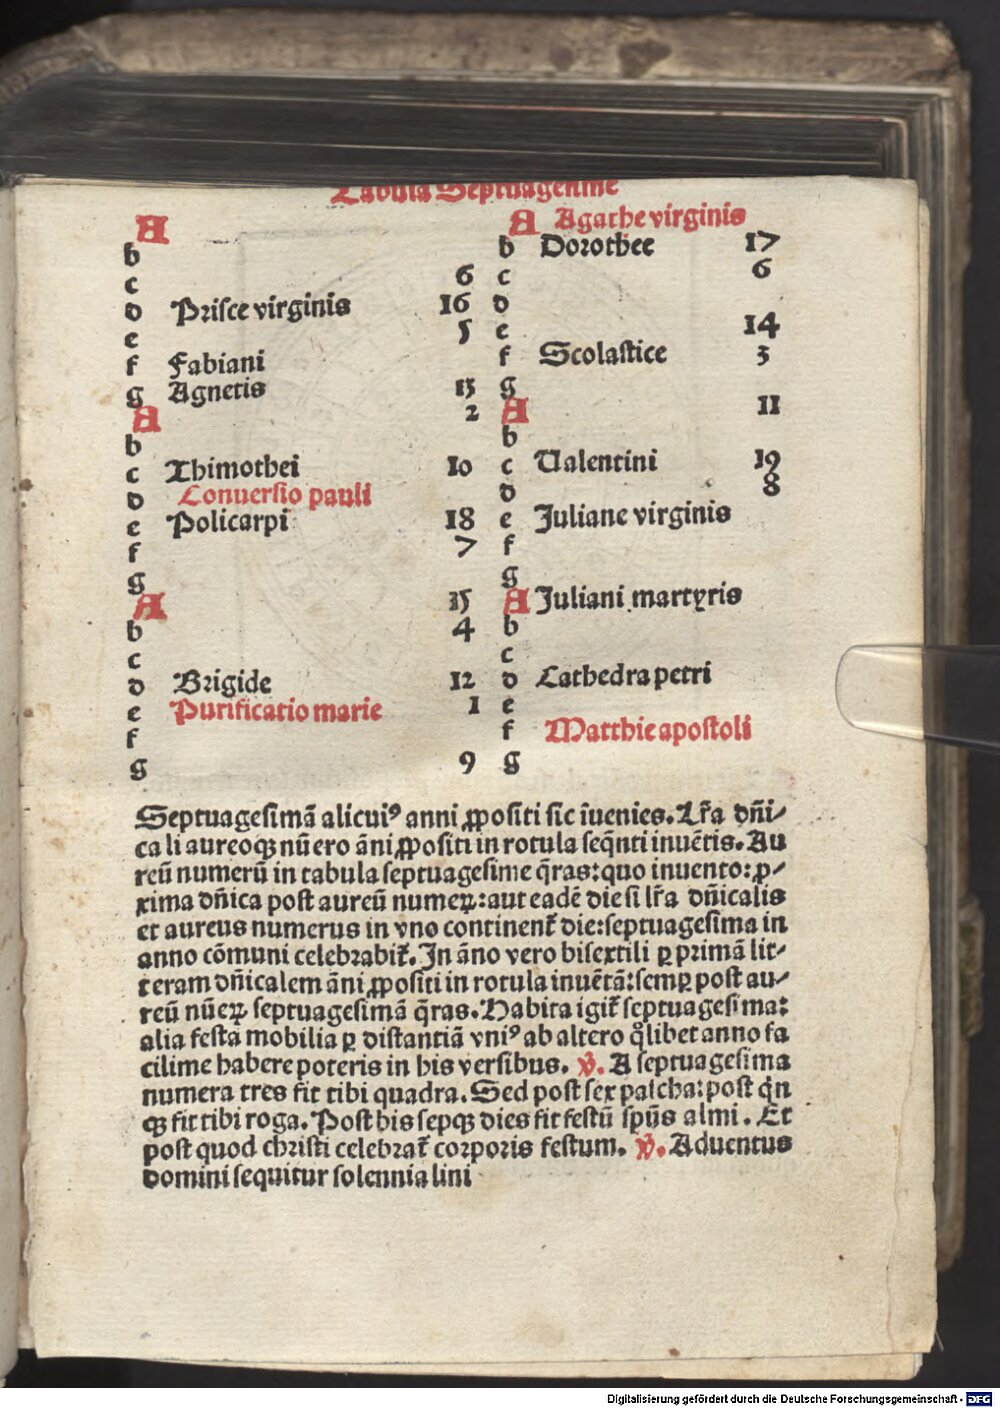 Tabula Septuagesime
A
b
c 6
d Prisce virginis 16
e 5
f Fabiani
g Agnetis 13
A 2
b
c Thimothei 10
d Conuersio pauli
e Policarpi 18
f 7
g
A 15
b 4
c
d Brigide 12
e Purificatio marie 1
f
g 9
A Agathe virginis
b Dorothee 17
c 6
d
e 14
f Scolastice 3
g
A 11
b
c Ualentini 19
d 8
e Juliane virginis
f
g
A Juliani martyris
b
c
d Cathedra petri
e
f Matthie apostoli
g
Septuagesimā alicuiꝰ anni ꝓpositi sic īuenies. Lr̄a dn̄i⸗
ca li aureoqꝫ nūero āni ꝓpositi in rotula seqn̄ti inuētis. Au
reū numerū in tabula septuagesime q̄ras: quo inuento: ꝓ⸗
xima dn̄ica post aureū numeꝝ: aut eadē die si lr̄a dn̄icalis
et aureus numerus in vno continent̄ die: septuagesima in
anno cōmuni celebrabit̄. In āno vero bisextili ꝑ primā lit⸗
teram dn̄icalem āni ꝓpositi in rotula inuētā: semꝑ post au⸗
reū nūeꝝ septuagesimā q̄ras. Habita igit̄ septuagesima:
alia festa mobilia ꝑ distantiā vniꝰ ab altero qͦlibet anno fa
cilime habere poteris in his versibus. ℣. A septuagesima
numera tres fit tibi quadra. Sed post sex pascha: post qn̄
qꝫ fit tibi roga. Post his sepqꝫ dies fit festū spūs almi. Et
post quod christi celebrat̄ corporis festum. ℣. Aduentus
domini sequitur solennia lini
Digitalisierung gefördert durch die Deutsche Forschungsgemeinschaft - DFG